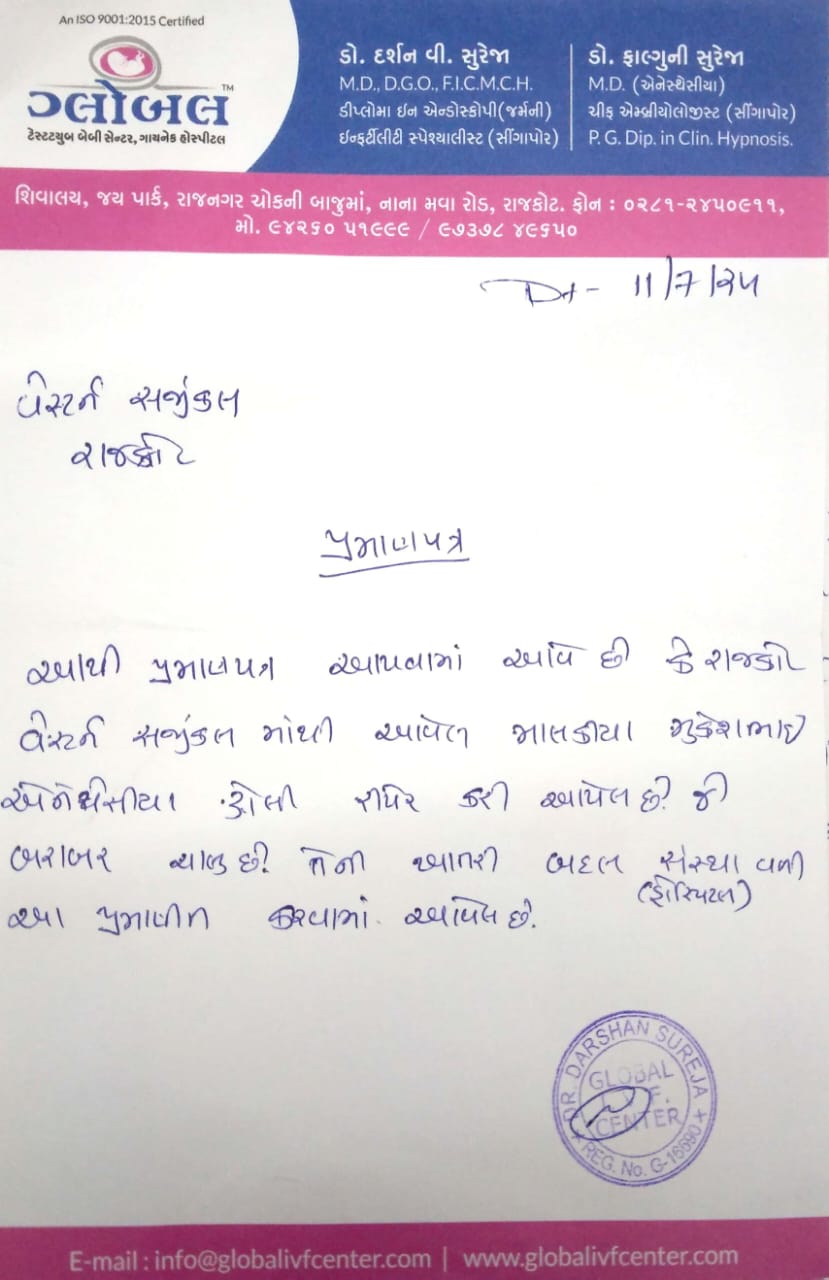 An ISO 9001:2015 Certified
ગ્લોબલ TM
ટેસ્ટટ્યુબ બેબી સેન્ટર, ગાયનેક હોસ્પીટલ
ડો. દર્શન વી. સુરેજા
M.D., D.G.O., F.I.C.M.C.H.
ડીપ્લોમા ઇન એન્ડોસ્કોપી(જર્મની)
ઇન્ફર્ટીલીટી સ્પેશ્યાલીસ્ટ (સીંગાપોર)
ડો. ફાલ્ગુની સુરેજા
M.D. (એનેસ્થેસીયા)
ચીફ એમ્બ્રીયોલોજીસ્ટ (સીંગાપોર)
P. G. Dip. in Clin. Hypnosis.
શિવાલય, જય પાર્ક, રાજનગર ચોકની બાજુમાં, નાના મવા રોડ, રાજકોટ. ફોન : ૦૨૮૧-૨૪૫૦૯૧૧,
મો. ૯૪૨૬૦ ૫૧૯૯૯ / ૯૭૩૭૮ ૪૯૬૫૦
Dt- 11/7/૨૫
વેસ્ટર્ન સર્જીકલ
રાજકોટ
પ્રમાણપત્ર
આથી પ્રમાણપત્ર આપવામાં આવે છી કે રાજકોટ
વેસ્ટર્ન સર્જીકલ માંથી આવેલ માલકીયા મુકેશભાઇ
એનેથેસીયા ટ્રોલી રીપેર કરી આપેલ છે. જે
બરાબર ચાલુ છે. તેની ખાતરી બદલ સંસ્થા વતી
(હોસ્પિટલ)
આ પ્રમાણીત કરવામાં આવેલ છે.
DR. DARSHAN SUREJA
GLOBAL
I.V.F.
CENTER
REG. No. G-16690
E-mail : info@globalivfcenter.com | www.globalivfcenter.com